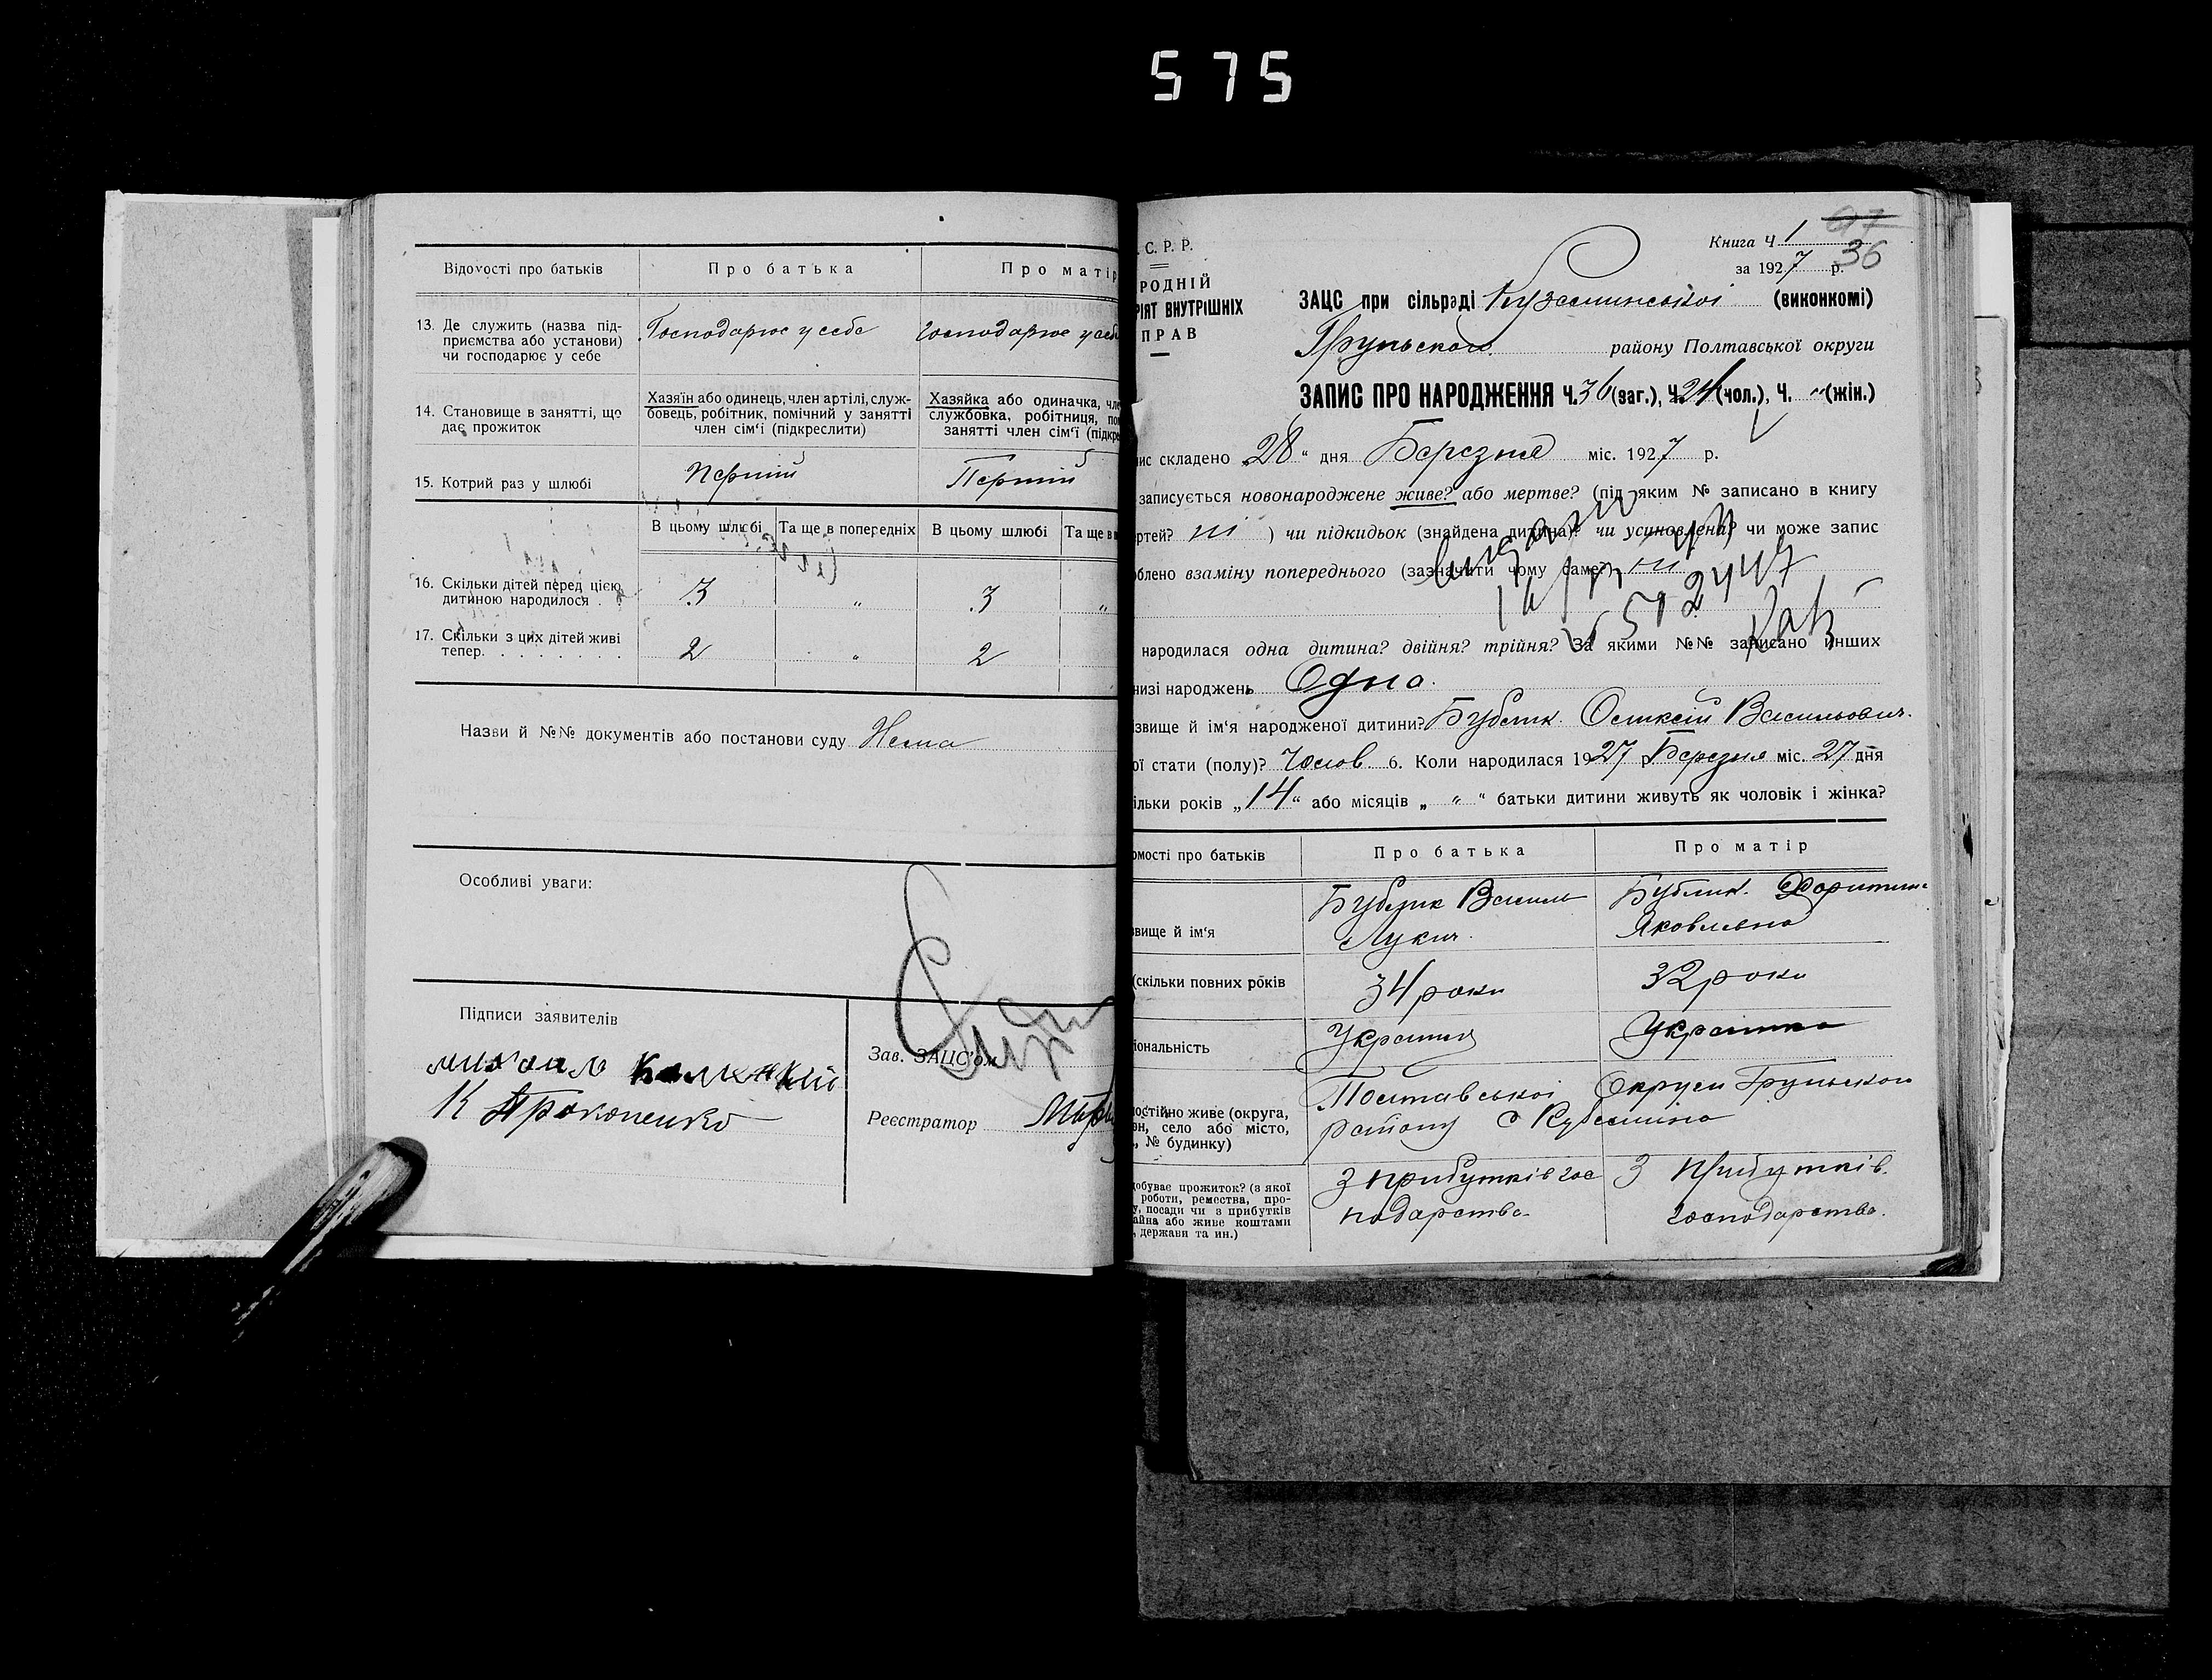 575
Відомості про батьків
Про батька
Про матір
13. Де служить (назва під-
приємства або установи)
чи господарює у себе
Господарює у себе
господарює у себе
14. Становище в занятті, що
дає прожиток
Хазяїн або одинець, член артілі, служ-
бовець, робітник, помічний у занятті
член сім'ї (підкреслити)
Хазяйка або одиначка, чле
службовка, робітниця, пом
занятті член сім'ї (підкре
15. Котрий раз у шлюбі
Перший
Перший
В цьому шлюбі
Та ще в попередніх
В цьому шлюбі
Та ще в
16. Скільки дітей перед цією
дитиною народилося . .
3 " 3 "
17. Скільки з цих дітей живі
тепер. . . . . . . .
2 " 2
Назви й №№ документів або постанови суду Нема
Особливі уваги:
Підписи заявителів
К Прокопенко
Зав. ЗАЦС'ом
Реєстратор
. С. Р. Р.
РОДНІЙ
РІЯТ ВНУТРІШНІХ
ПРАВ
Книга Ч 1
97
36
за 1927 р.
ЗАЦС при сільраді (виконкомі)
Грунського району Полтавської округи
ЗАПИС ПРО НАРОДЖЕННЯ Ч. 36 (заг.), Ч. 24 (чол.), Ч. " (жін.)
ис складено „28“ дня Березня міс. 1927 р.
записується новонароджене живе? або мертве? (під яким № записано в книгу
ртей? ні ) чи підкидьок (знайдена дитина)? чи усиновлена? чи може запис
облено взаміну попереднього (зазначити чому саме?) ні
народилася одна дитина? двійня? трійня? За якими №№ записано інших
низі народжень Одна.
ізвище й ім'я народженої дитини? Бублик Олексій Васильович.
ої стати (полу)? Чолов. 6. Коли народилася 1927 р. Березня міс. 27 дня
ільки років „14“ або місяців „ " “ батьки дитини живуть як чоловік і жінка?
омості про батьків
Про батька
Про матір
звище й ім'я
Бублик Василь
Лукич
Бублик
Яковлевна
(скільки повних років
34 роки
32 роки
іональність
Українець
Українка
остійно живе (округа,
он, село або місто,
, № будинку)
Полтавської Округи Грунського
району с
обуває прожиток? (з якої
роботи, ремества, про-
у, посади чи з прибутків
айна або живе коштами
, держави та ин.)
З прибутків гос
подарства
З прибутків
господарства.